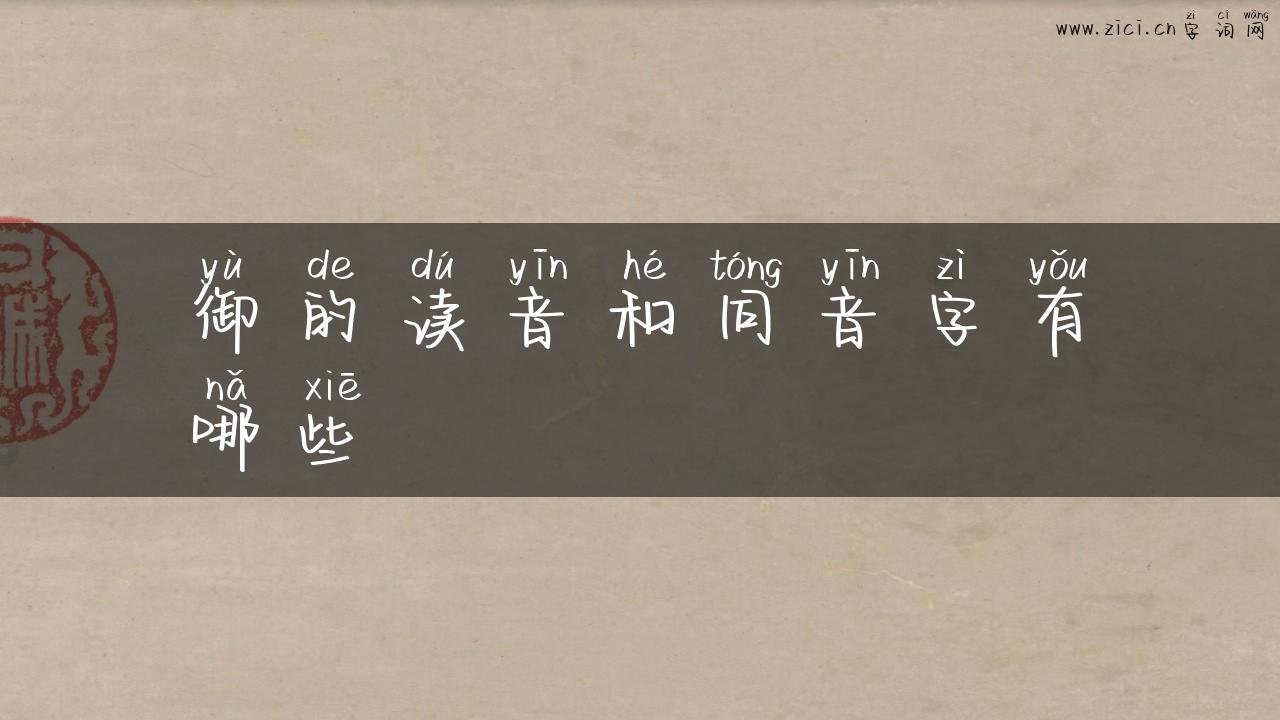 zì cí wǎng
www.zici.cn 字词网
yù de dú yīn hé tóng yīn zì yǒu
御的读音和同音字有
nǎ xiē
哪些